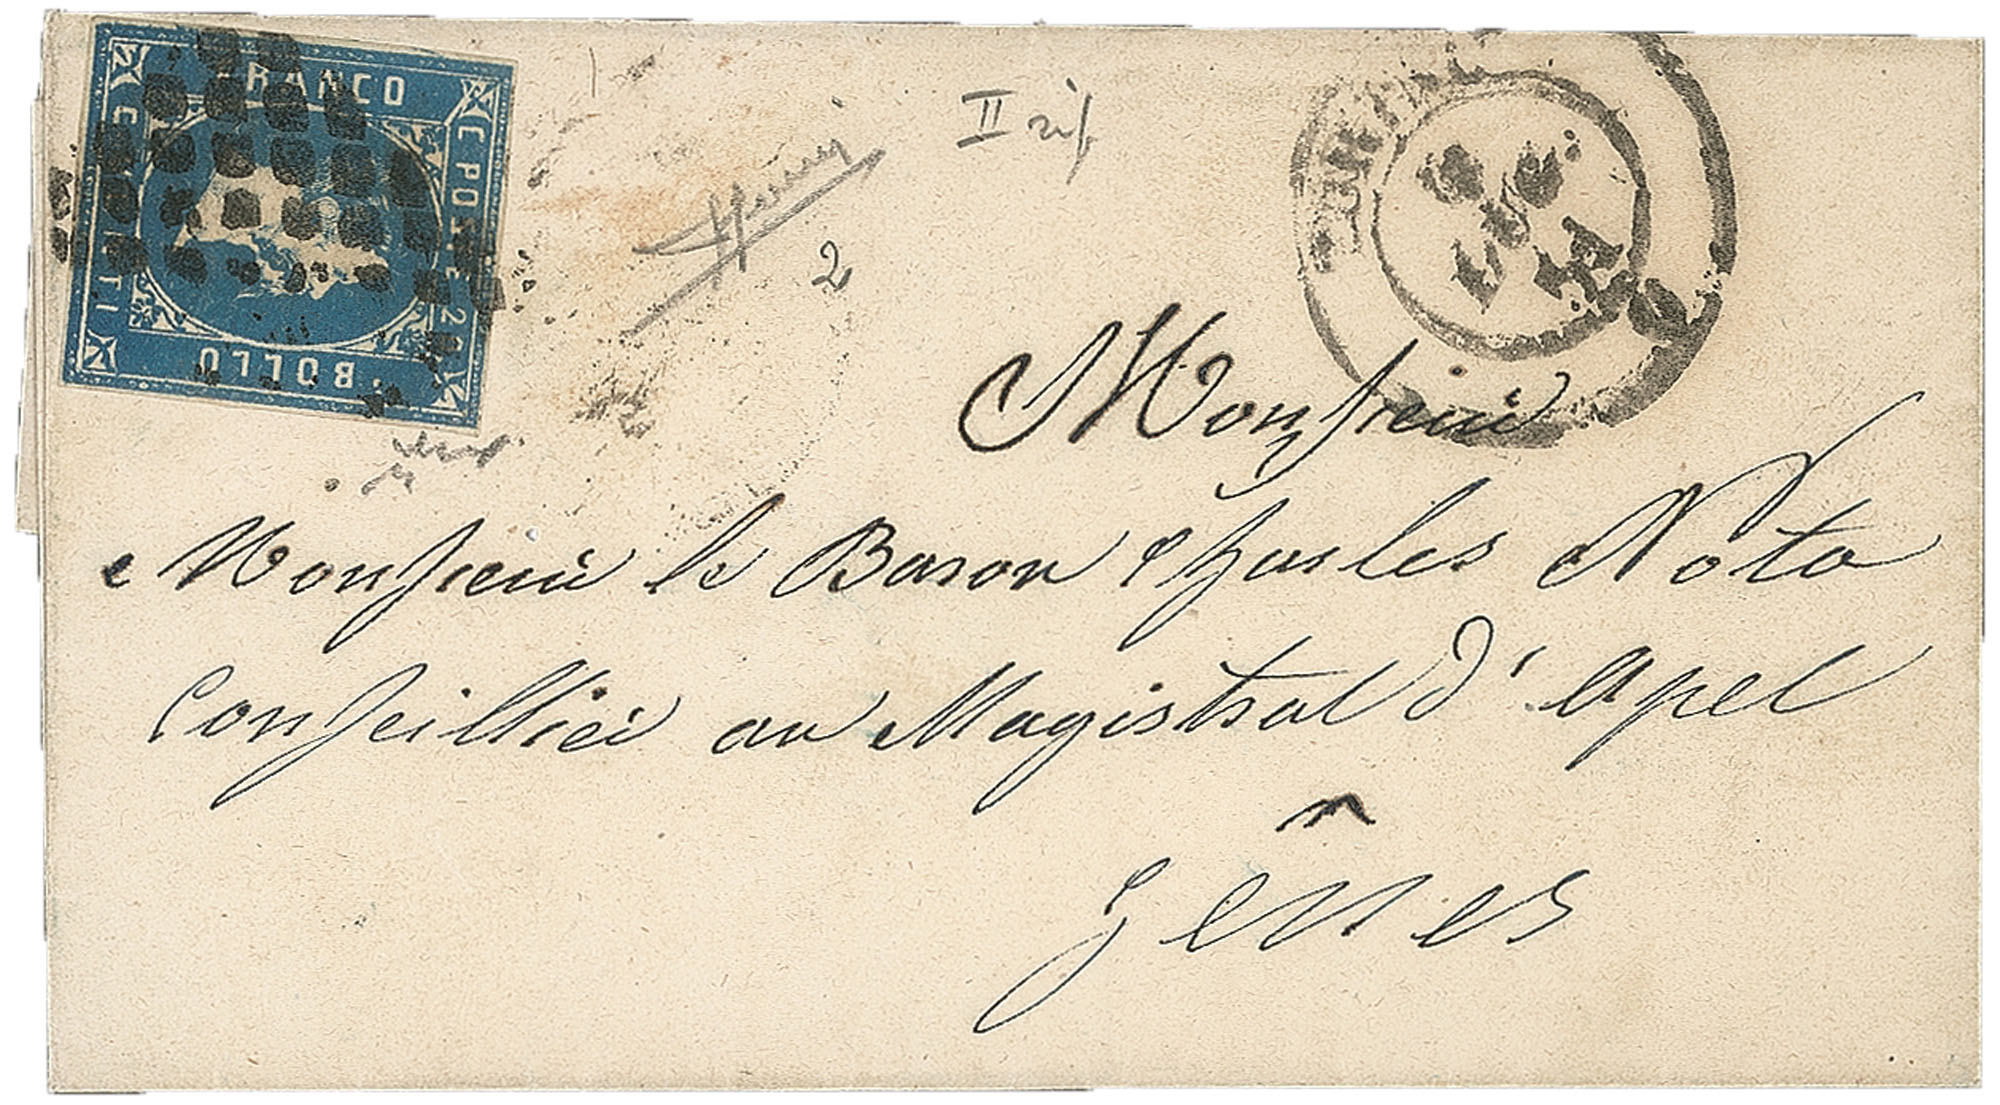 FRANCO
C. POSTE 20
BOLLO
CENTI
II rif
2
Monsieur
Monsieur le Baron Charles Nota
Conseillier au Magistrat d'Apel
Gênes